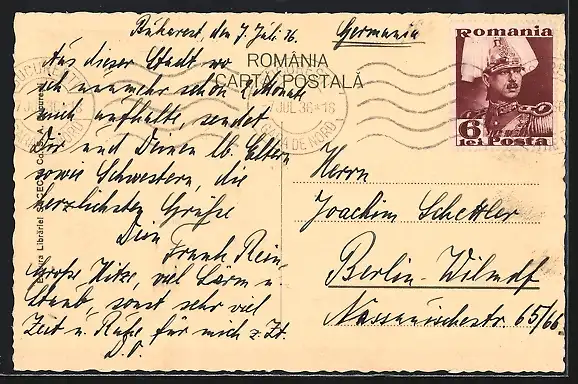 Bukarest, den 7. Juli 36.
Germania
ROMÂNIA
CARTA POSTALĂ
Aus dieser Stadt wo
ich nunmehr schon 2 Monate
mich aufhalte, sendet
Dir und Deinen lb. Eltern
sowie Schwestern, die
herzlichsten Grüße
Dein
Frank Rein.
Große Hitze, viel Lärm u.
Staub, sonst sehr viel
Zeit u. Ruhe für mich z. Zt.
D. O.
Romania
6
lei Posta
7 JUL 36 - 18
GARA DE NORD
Herrn
Joachim Schettler
Berlin-Wilmdf
Nassauischestr 65/66